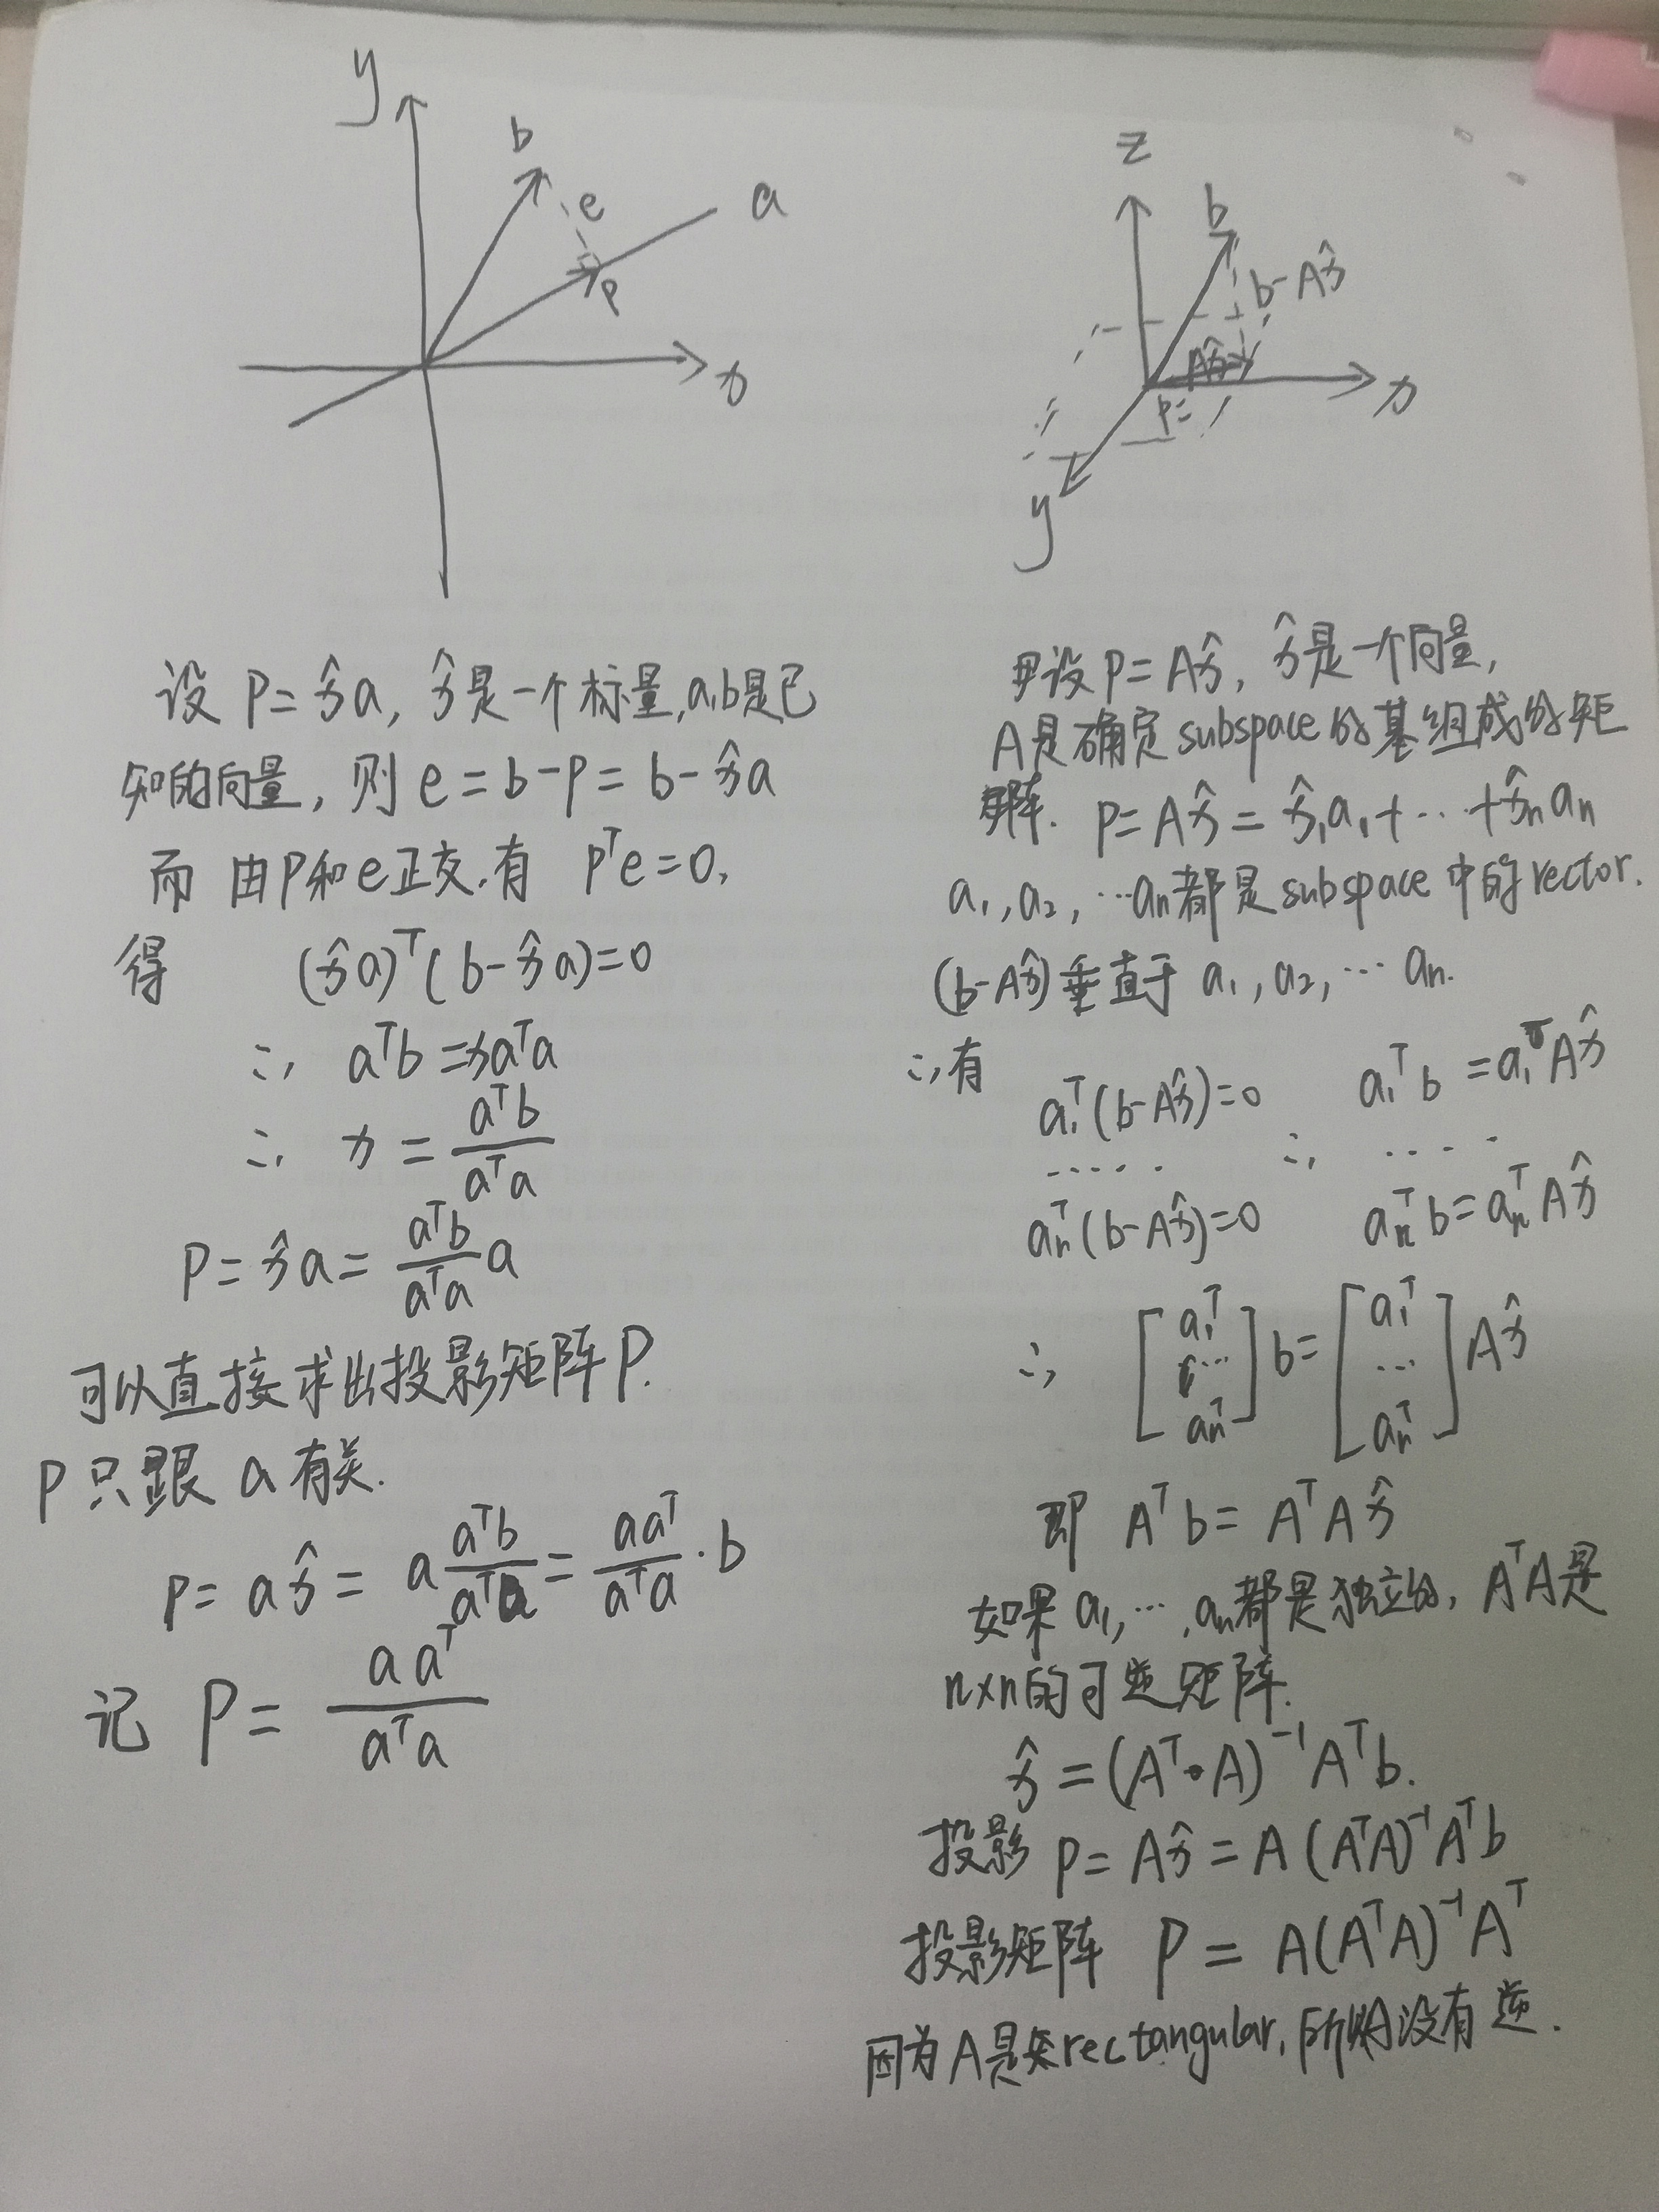 y
b
e
a
p
x
设 p = x̂a, x̂是一个标量,a,b是已
知的向量, 则 e = b-p = b-x̂a
而 由p和e正交,有 pᵀe=0,
得 (x̂a)ᵀ(b-x̂a)=0
∴ aᵀb = xaᵀa
∴ x = aᵀb / aᵀa
p = x̂a = aᵀb / aᵀa a
可以直接求出投影矩阵P.
P只跟 a 有关.
p = ax̂ = a aᵀb / aᵀa = aaᵀ / aᵀa · b
记 P = aaᵀ / aᵀa
z
b
b-Ax̂
Ax̂
p=
x
y
设 p = Ax̂, x̂是一个向量,
A是确定subspace的基组成的矩
阵. p = Ax̂ = x̂₁a₁+…+x̂ₙaₙ
a₁,a₂,…aₙ都是subspace中的vector.
(b-Ax̂)垂直于 a₁,a₂,…aₙ.
∴有 a₁ᵀ(b-Ax̂)=0 a₁ᵀb = a₁ᵀAx̂
..... ∴ ....
aₙᵀ(b-Ax̂)=0 aₙᵀb = aₙᵀAx̂
∴ [a₁ᵀ … aₙᵀ] b = [a₁ᵀ … aₙᵀ] Ax̂
即 Aᵀb = AᵀAx̂
如果 a₁,…,aₙ都是独立的, AᵀA是
n×n的可逆矩阵.
x̂ = (Aᵀ·A)⁻¹Aᵀb.
投影 p = Ax̂ = A(AᵀA)⁻¹Aᵀb
投影矩阵 P = A(AᵀA)⁻¹Aᵀ
因为A是rectangular,所以A没有逆.